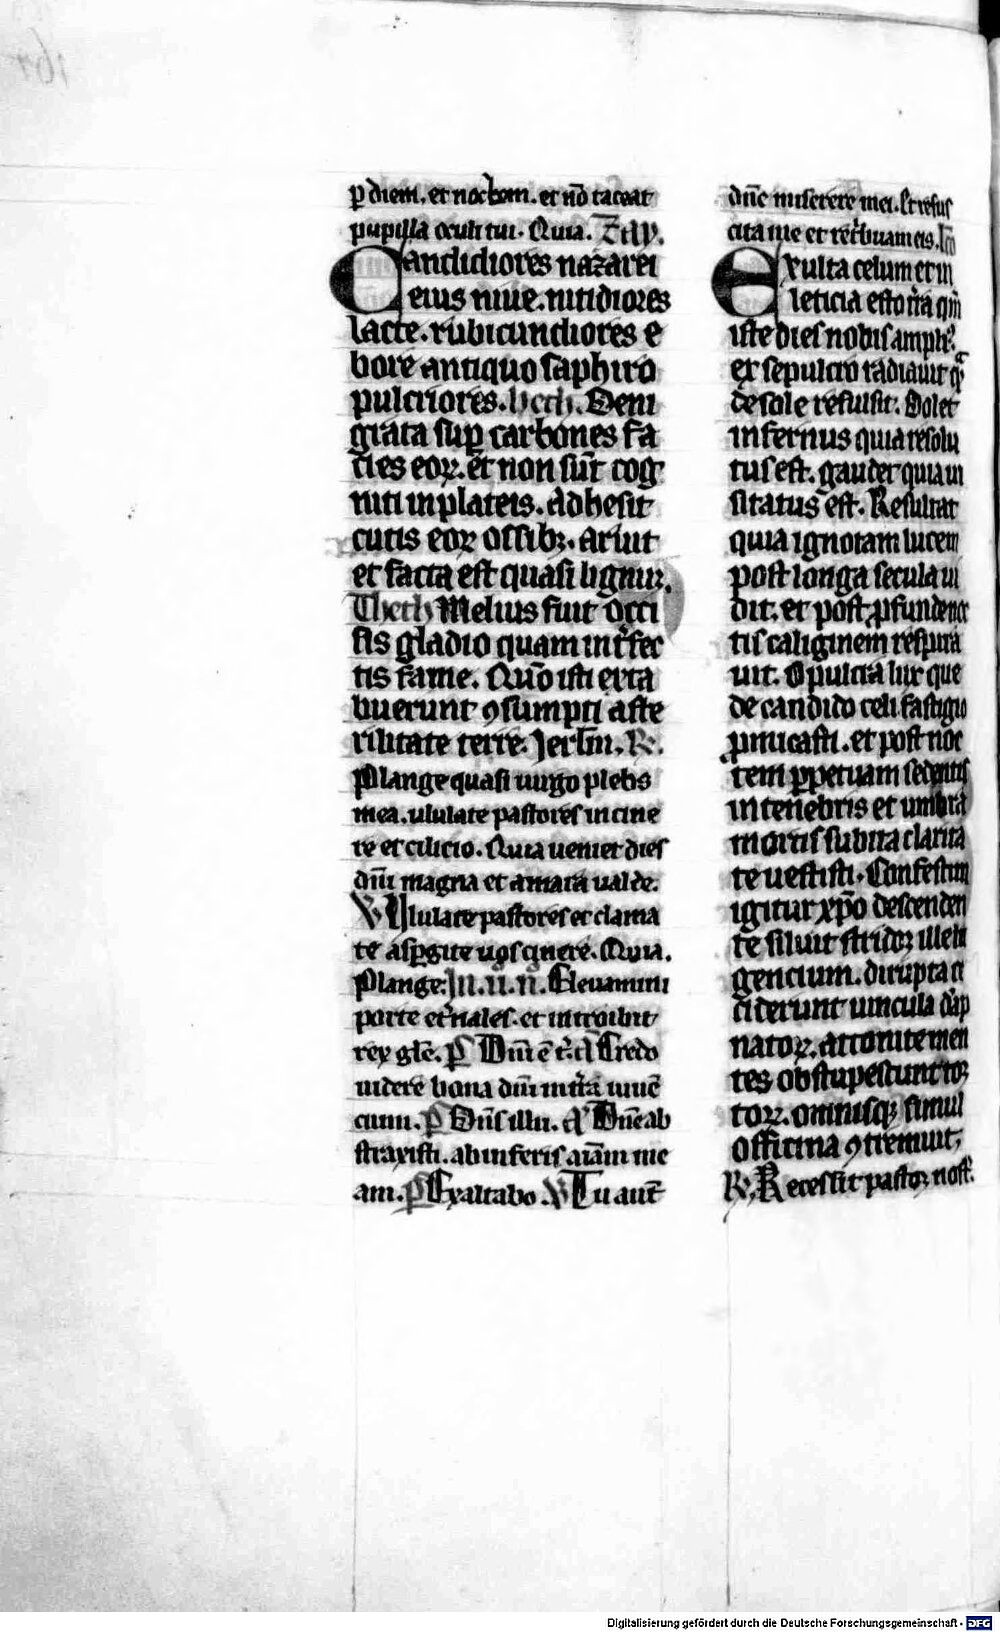 ꝑ diem. et noctem. et nō taceat
pupilla oculi tui. Quia. Zay.
Candidiores nazarei
eius niue. nitidiores
lacte. rubicundiores e
bore antiquo saphiro
pulcriores. heth. Deni
grata suꝑ carbones fa
cies eoꝝ. et non sūt cog
niti in plateis. Adhesit
cutis eoꝝ ossibꝫ. Aruit
et facta est quasi lignuꝫ.
Theth Melius fuit occi
sis gladio quam int̉fec
tis fame. Qm̄o isti exta
buerunt ꝯsumpti a ste
rilitate terre. Jerl̄m. R.
Plange quasi uirgo plebs
mea. ululate pastores in cine
re et cilicio. Quia ueniet dies
dn̄i magna et amara ualde.
V Ululate pastores et clama
te asꝑgite uos cinere. Quia.
Plange. In .ii. n̄. Eleuamini
porte et̉nales. et introibit
rex gl̄e. P̄ Dn̄i ē t̉. A Credo
uidere bona dn̄i in tr̄a uiuē
cium. P̄ Dn̄s illu. A Dn̄e ab
straxisti. ab inferis aīam me
am. P̄ Exaltabo. V Tu aut̄
dn̄e miserere mei. Et resus
cita me et ret̉buam eis.
Exulta celum et in
leticia esto t̉ra qm̄
iste dies nobis ampli᷒.
ex sepulcro radiauit qᷓ
de sole refulsit. Dolet
infernus quia resolu
tus est. gaudet quia ui
sitatus est. Resultat
quia ignotam lucem
post longa secula ui
dit. et post ꝓfunde noc
tis caliginem respira
uit. O pulcra lux que
de candido celi fastigio
ꝓmicasti. et post noc
tem ꝑpetuam sedentis
in tenebris et umbra
mortis subita clarita
te uestisti. Confestim
igitur xp̄o descenden
te siluit stridoꝝ ille lu
gencium. dirupta ce
ciderunt uincula dāp
natoꝝ. attonite men
tes obstupescunt toꝝ
toꝝ. omnisqꝫ simul
officina ꝯtremuit.
R. Recessit pastoꝝ nost̉.